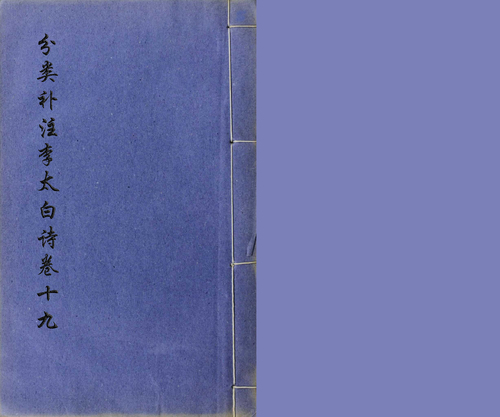 分类补注李太白诗卷十九